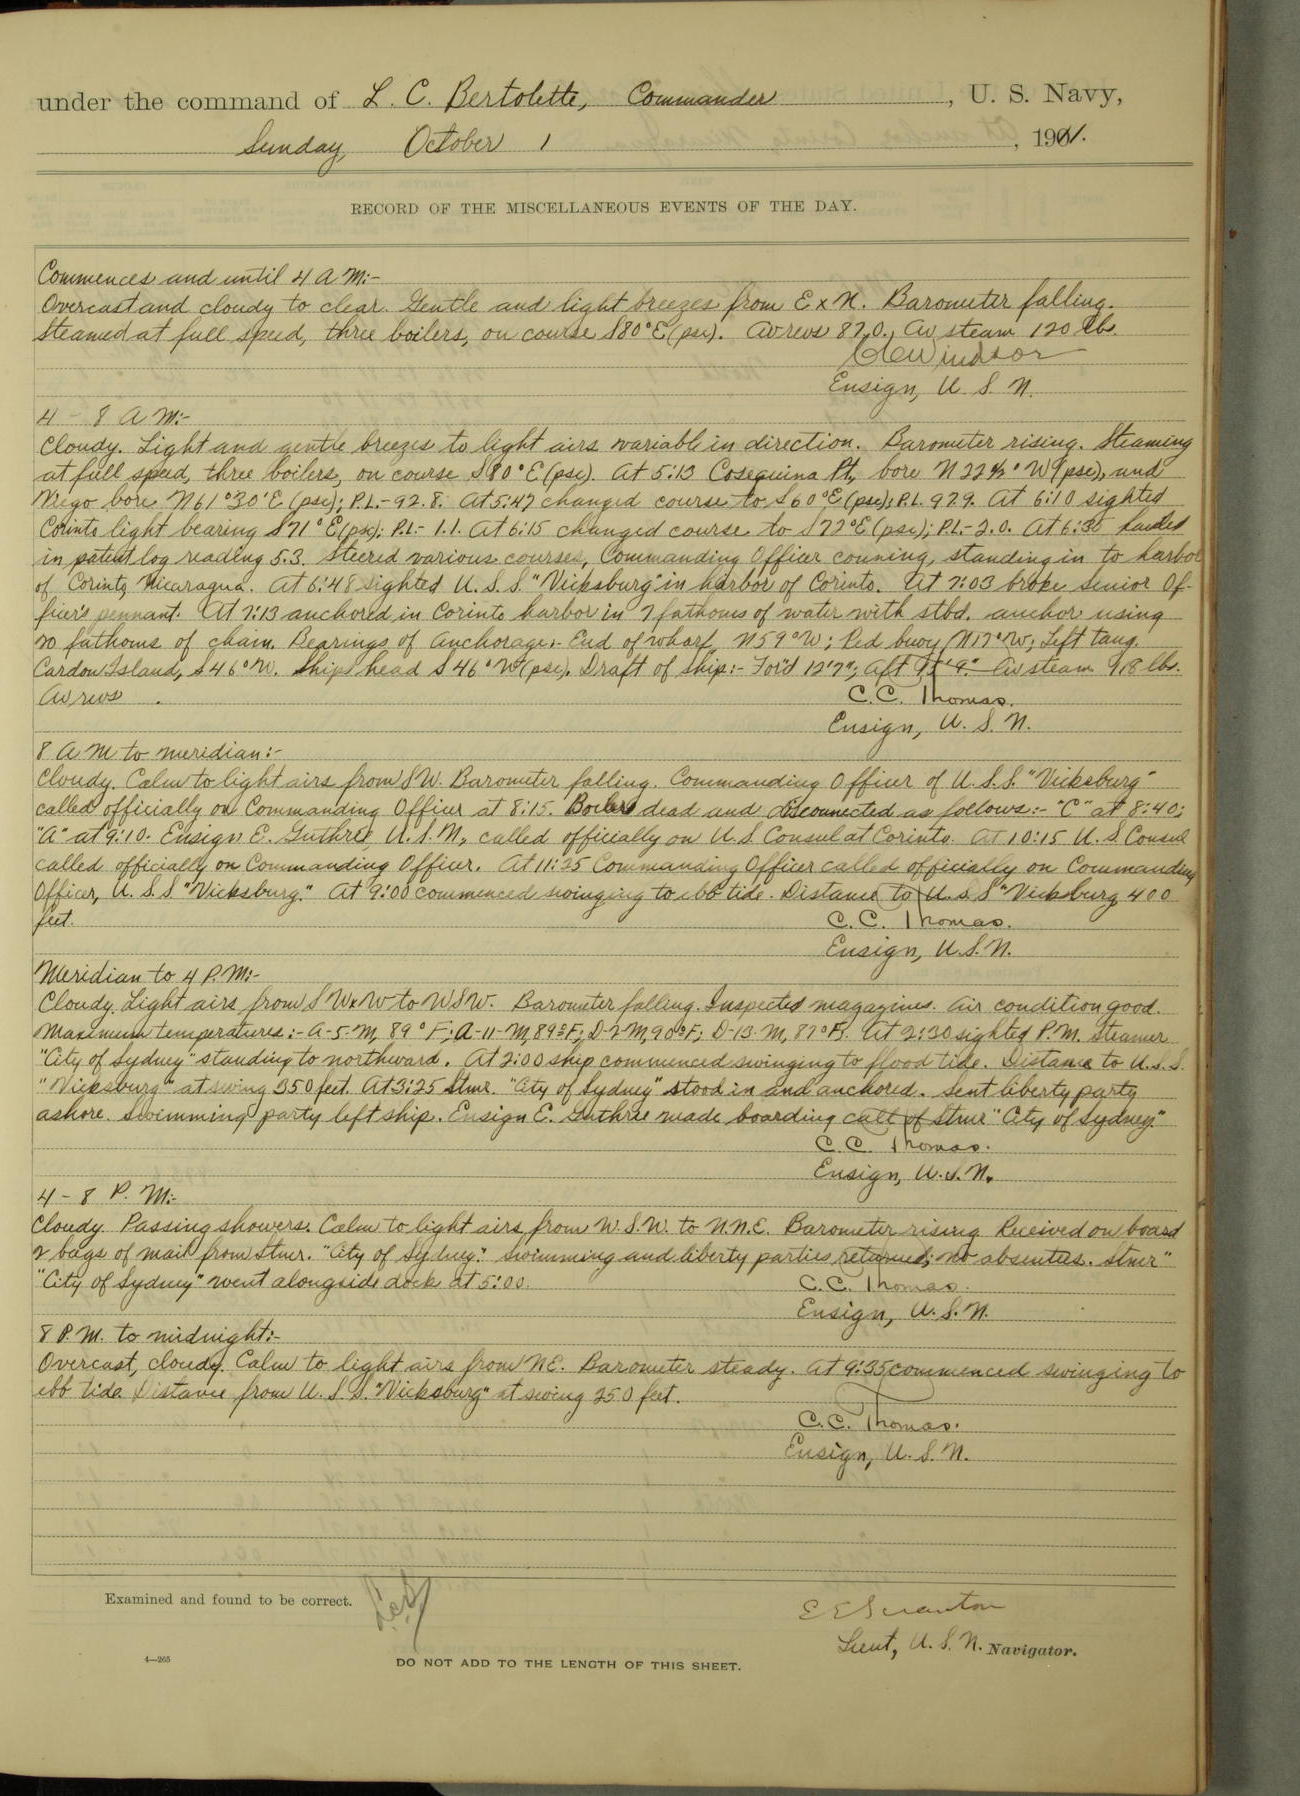 under the command of L. C. Bertolette, Commander, U. S. Navy,
Sunday, October 1, 1911.
RECORD OF THE MISCELLANEOUS EVENTS OF THE DAY.
Commences and until 4 A M:-
Overcast and cloudy to clear. Gentle and light breezes from E x N. Barometer falling.
Steamed at full speed, three boilers, on course S80°E (psc). Av revs 87.0, Av steam 120 lbs.
Windsor
Ensign, U. S. N.
4 - 8 A M:-
Cloudy. Light and gentle breezes to light airs variable in direction. Barometer rising. Steaming
at full speed, three boilers, on course S80°E (psc). At 5:13 Coseguina Pt., bore N 22½° W (psc), and
bore N61°30'E (psc); P.L.- 92.8. At 5:47 changed course to S60°E (psc); P.L. 97.9. At 6:10 sighted
Corinto light bearing S71°E (psc); P.L.- 1.1. At 6:15 changed course to S72°E (psc); P.L.- 2.0. At 6:30 hauled
in patent log reading 5.3. Steered various courses, Commanding Officer conning, standing in to harbor
of Corinto, Nicaragua. At 6:48 sighted U. S. S. "Vicksburg" in harbor of Corinto. At 7:03 broke Senior Of-
ficer's pennant. At 7:13 anchored in Corinto harbor in 7 fathoms of water with stbd. anchor using
20 fathoms of chain. Bearings of Anchorage:- End of wharf, N59°W; Red buoy N17°W; Left tang.
Cardon Island, S46°W. Ship's head S46°W (psc). Draft of ship:- For'd 12'7"; Aft Av steam 118 lbs.
Av revs .
C. C. Thomas.
Ensign, U. S. N.
8 A M to meridian:-
Cloudy. Calm to light airs from SW. Barometer falling. Commanding Officer of U. S. S. "Vicksburg"
called officially on Commanding Officer at 8:15. Boilers dead and disconnected as follows:- "C" at 8:40;
"A" at 9:10. Ensign E. Guthrie, U. S. N., called officially on U. S. Consul at Corinto. At 10:15 U. S. Consul
called officially on Commanding Officer. At 11:25 Commanding Officer called officially on Commanding
Officer, U. S. S. "Vicksburg." At 9:00 commenced swinging to ebb tide. Distance to U. S. S. "Vicksburg 400
feet.
C. C. Thomas.
Ensign, U. S. N.
Meridian to 4 P. M:-
Cloudy. Light airs from SWxW to WSW. Barometer falling. Inspected magazines. Air condition good.
Maximum temperatures:- A-5-M, 89°F; A-11-M, 89°F; D-2-M, 90°F; D-13-M, 87°F. At 2:30 sighted P.M. Steamer
"City of Sydney" standing to northward. At 2:00 ship commenced swinging to flood tide. Distance to U. S. S.
"Vicksburg" at swing 350 feet. At 3:25 Stmr. "City of Sydney" stood in and anchored. Sent liberty party
ashore. Swimming party left ship. Ensign E. Guthrie made boarding call of Stmr "City of Sydney."
C. C. Thomas.
Ensign, U. S. N.
4 - 8 P. M:-
Cloudy. Passing showers. Calm to light airs from W. S. W. to N. N. E. Barometer rising. Received on board
2 bags of mail from Stmr. "City of Sydney." Swimming and liberty parties returned; no absentees. Stmr"
"City of Sydney" went alongside dock at 5:00.
C. C. Thomas.
Ensign, U. S. N.
8 P. M. to midnight:-
Overcast, cloudy. Calm to light airs from NE. Barometer steady. At 9:35 commenced swinging to
ebb tide. Distance from U. S. S. "Vicksburg" at swing 250 feet.
C. C. Thomas.
Ensign, U. S. N.
Examined and found to be correct.
E E Scranton
Lieut, U. S. N. Navigator.
4—265
DO NOT ADD TO THE LENGTH OF THIS SHEET.